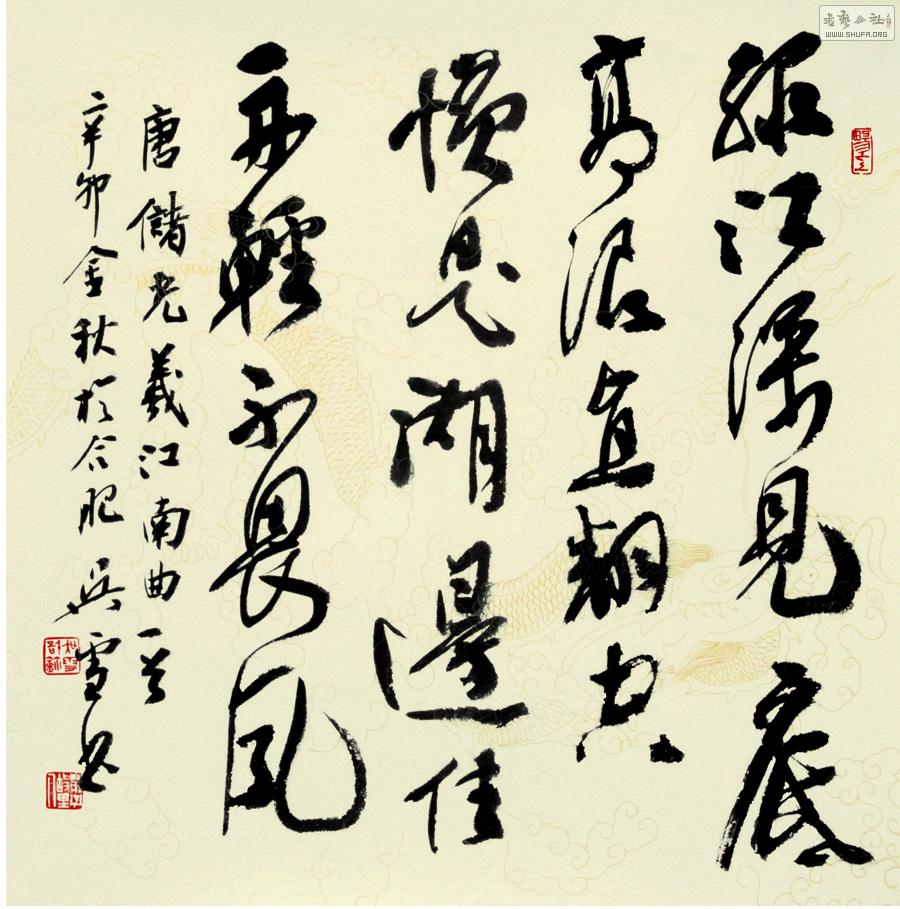 綠江深見底
高浪直翻空
慣是湖邊住
舟輕不畏風
唐儲光羲江南曲一首
辛卯金秋於合肥吳雪書
書藝公社
WWW.SHUFA.ORG